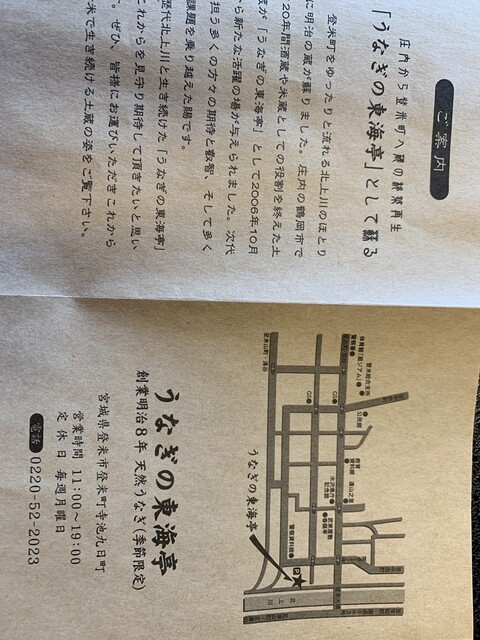 ご案内
庄内から登米町へ蔵の移築再生
「うなぎの東海亭」として蘇る
登米町をゆったりと流れる北上川のほとり
に明治の蔵が蘇りました。庄内の鶴岡市で
20年間酒蔵や米蔵としての役割を終えた土
蔵が「うなぎの東海亭」として2006年10月
から新たな活躍の場が与えられました。次代
担う多くの方々の期待と叡智、そして多く
課題を乗り越えた賜です。
歴代北上川と生き続けた「うなぎの東海亭」
これからを見守り期待して頂きたいと思い
。ぜひ、皆様にお運びいただきこれから
米で生き続ける土蔵の姿をご覧下さい。
登米総合支所
警察署
公民館
GS
GS
教育資料館
遠山之里
水沢県庁記念館
武家屋敷
春蘭亭
警察資料館
P
北上川
うなぎの東海亭
うなぎの東海亭
創業明治8年 天然うなぎ(季節限定)
宮城県登米市登米町寺池九日町
営業時間 11:00〜19:00
定休日 毎週月曜日
電話 0220-52-2023